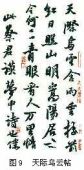 天際烏雲含雨重樓前
紅日照山明嵩陽居士
今何在青眼看人万里情
此蔡君謨夢中詩也僕
图9 天际乌云帖